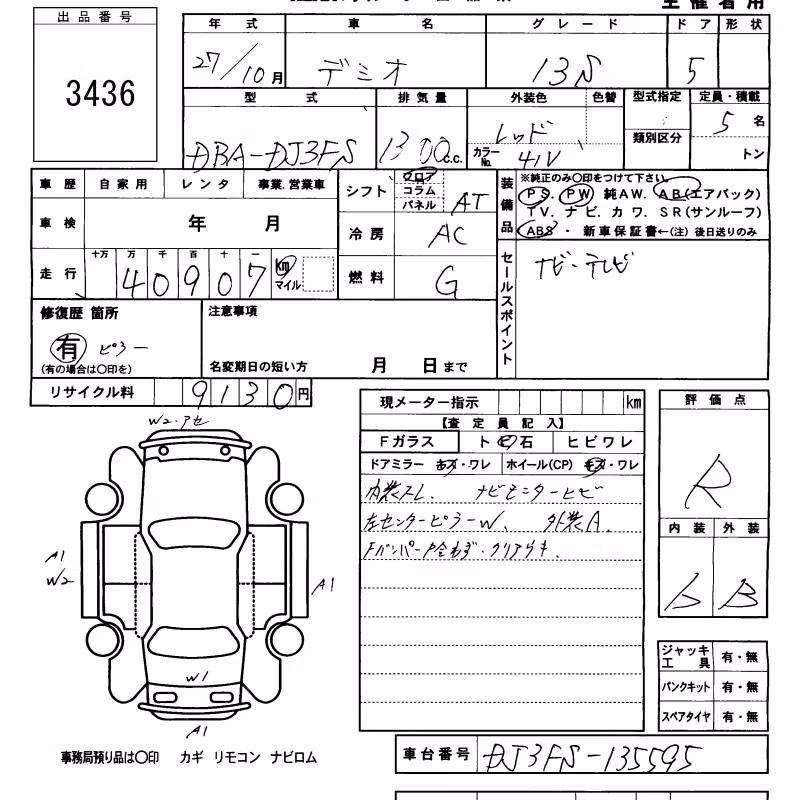 出品番号
3436
年式 車名 グレード ドア 形状
27/10月 デミオ 13S 5
型式 排気量 外装色 色替 型式指定 定員・積載
類別区分
DBA-DJ3FS 1300c.c. レッド カラーNo. 41V 5名
トン
車歴 自家用 レンタ 事業.営業車
シフト フロア コラム パネル AT
装備品 ※純正のみ〇印をつけて下さい。
PS. PW 純AW. AB(エアバック)
TV. ナビ. カワ. SR(サンルーフ)
ABS・新車保証書←(注) 後日送りのみ
車検 年 月
冷房 AC
走行 十万 万 千 百 十 一
40907 km マイル
燃料 G
セールスポイント ナビ・テレビ
修復歴 箇所
有 ピラー
(有の場合は〇印を)
注意事項
名変期日の短い方 月 日まで
リサイクル料 9130円
現メーター指示 km
【査定員記入】
Fガラス トビ石 ヒビワレ
ドアミラー キズ・ワレ ホイール(CP) キズ・ワレ
ナビモニターヒビ
左センターピラーW、 外装A.
評価点
R
内装 外装
B
W2・アセ
A1
W2
A1
W1
A1
ジャッキ工具 有・無
パンクキット 有・無
スペアタイヤ 有・無
事務局預り品は〇印 カギ リモコン ナビロム
車台番号 DJ3FS-135595